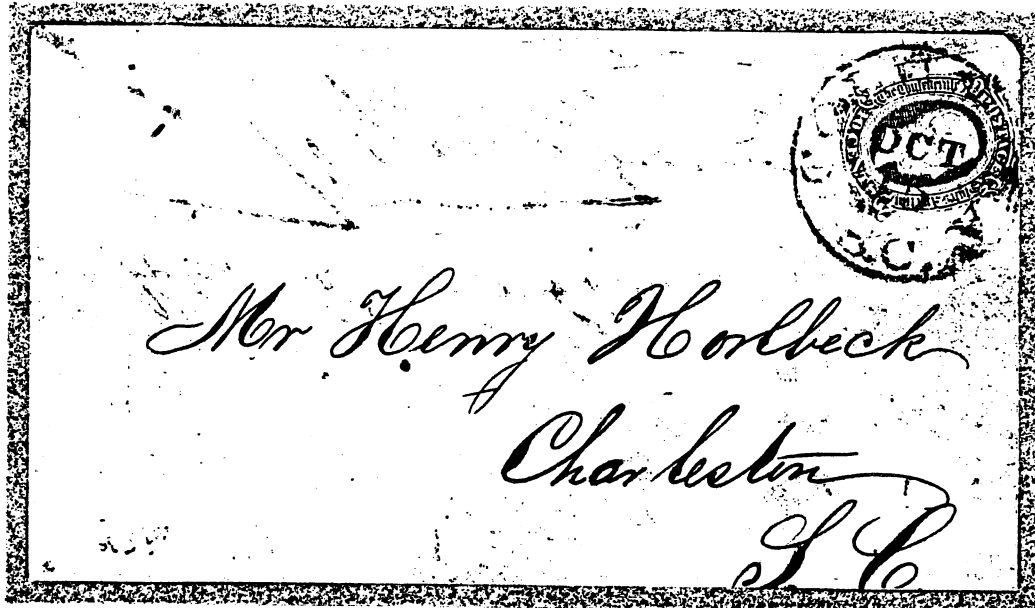 OCT
S.C.
Mr Henry Horlbeck
Charleston
S C